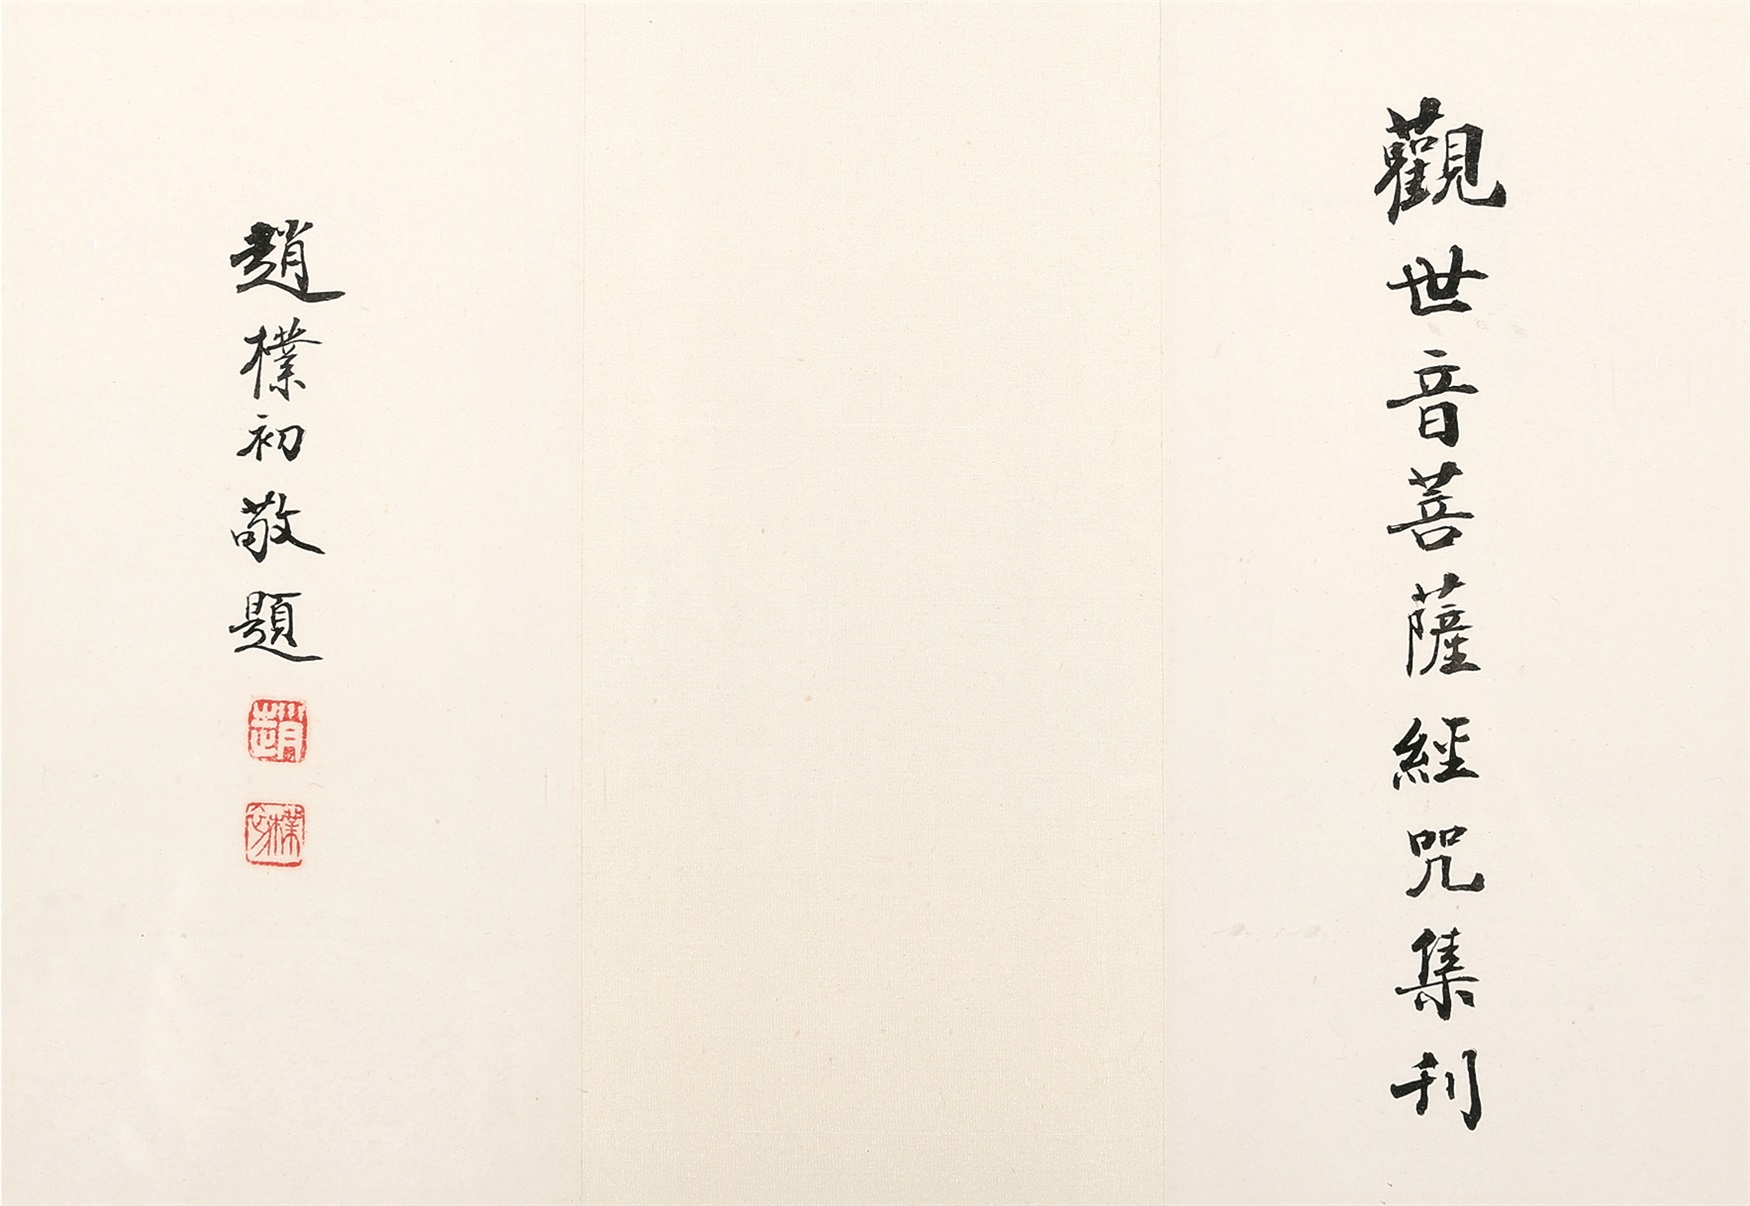 觀世音菩薩經咒集刊
趙樸初敬題
趙
樸初